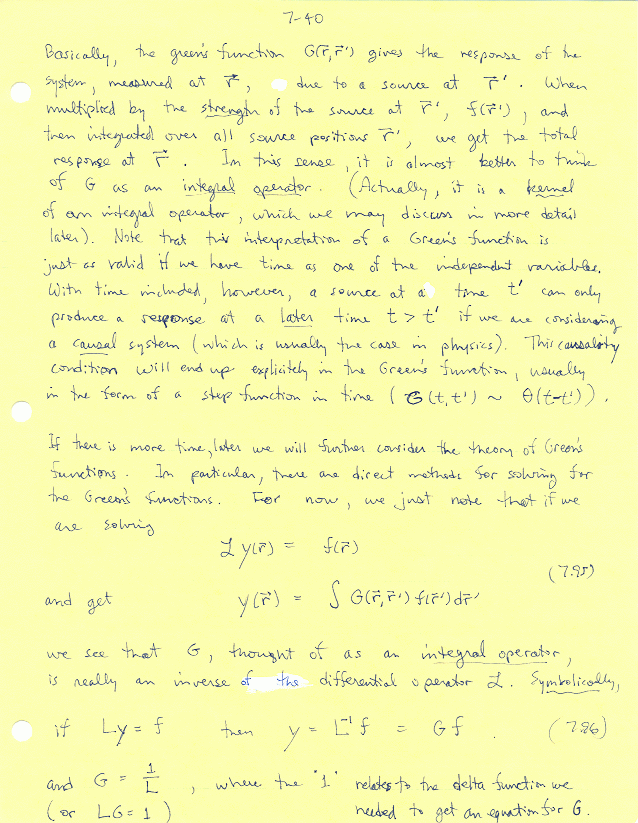 7-40
Basically, the green's function G(r⃗,r⃗') gives the response of the
system, measured at r⃗, due to a source at r⃗'. When
multiplied by the strength of the source at r⃗', f(r⃗'), and
then integrated over all source positions r⃗', we get the total
response at r⃗. In this sense, it is almost better to think
of G as an integral operator. (Actually, it is a kernel
of an integral operator, which we may discuss in more detail
later). Note that this interpretation of a Green's function is
just as valid if we have time as one of the independent variables.
With time included, however, a source at a time t' can only
produce a response at a later time t > t' if we are considering
a causal system (which is usually the case in physics). This causality
condition will end up explicitly in the Green's function, usually
in the form of a step function in time (G(t,t') ~ θ(t-t')).
If there is more time, later we will further consider the theory of Green's
functions. In particular, there are direct methods for solving for
the Green's functions. For now, we just note that if we
are solving
ℒ y(r⃗) = f(r⃗)
(7.95)
and get y(r⃗) = ∫ G(r⃗,r⃗') f(r⃗') dr⃗'
we see that G, thought of as an integral operator,
is really an inverse of the differential operator ℒ. Symbolically,
if Ly = f then y = L⁻¹f = Gf. (7.96)
and G = 1/L, where the "1" relates to the delta function we
(or LG = 1) needed to get an equation for G.